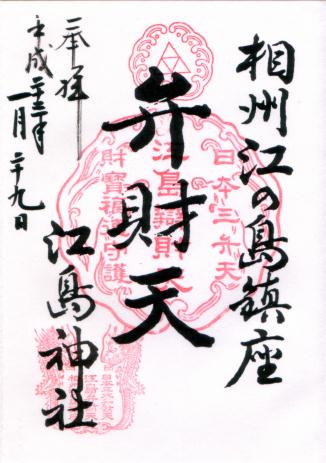 相州江の島鎮座
弁財天
奉拝
平成二十三年
一月二十九日
江島神社
日本三弁天
江島辯財天
財寶福徳守護